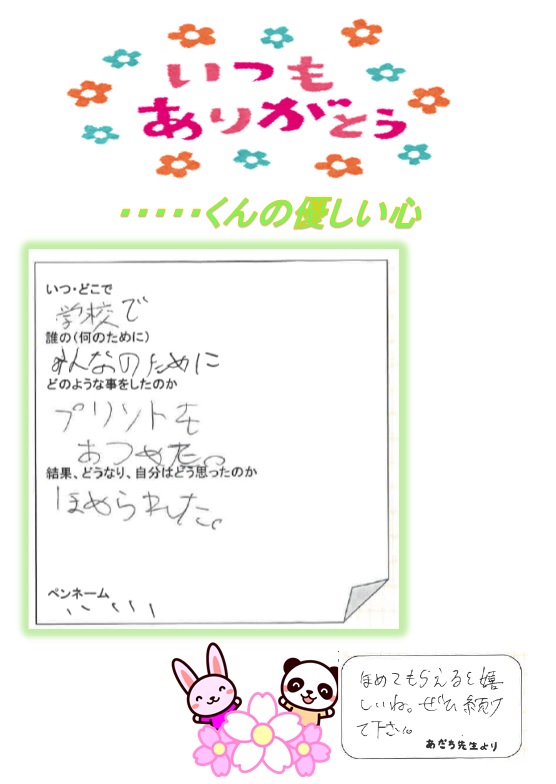 いつも
ありがとう
・・・・・くんの優しい心
いつ・どこで
学校で
誰の(何のために)
みんなのために
どのような事をしたのか
プリントを
あつめた。
結果、どうなり、自分はどう思ったのか
ほめられた。
ペンネーム
、、、、、
ほめてもらえると嬉
しいね。ぜひ続け
て下さい。
あだち先生より